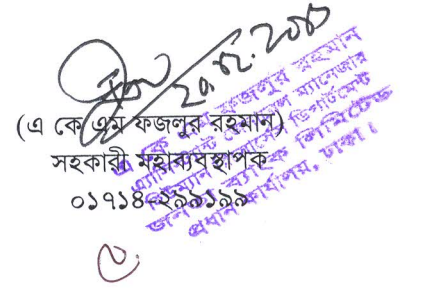 ২৯.০২.২০১০
(এ কে এম ফজলুর রহমান)
সহকারী মহাব্যবস্থাপক
০১৭১৪-২৯৯১৯৯
এ কে এম ফজলুর রহমান
এ্যাসিসট্যান্ট জেনারেল ম্যানেজার
হিউম্যান রিসোর্সেস ডিপার্টমেন্ট
জনতা ব্যাংক লিমিটেড
প্রধান কার্যালয়, ঢাকা।